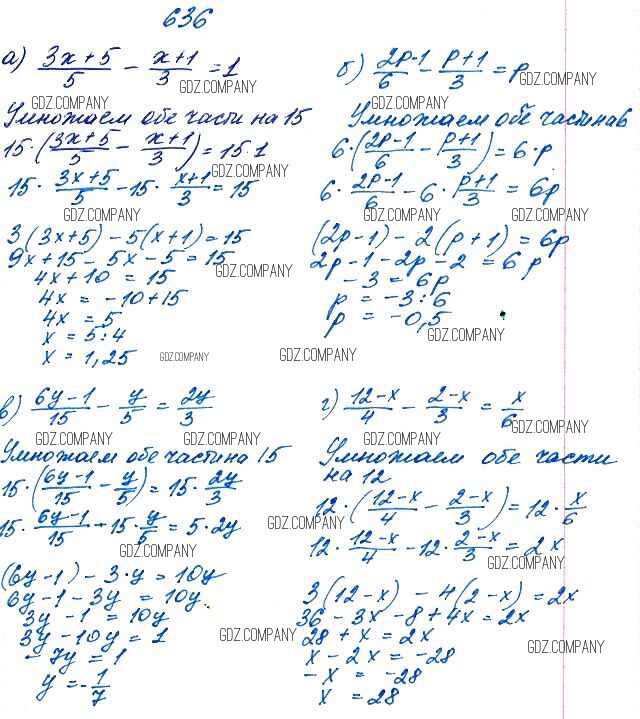 636
а) (3x+5)/5 − (x+1)/3 = 1
GDZ.COMPANY GDZ.COMPANY
Умножаем обе части на 15
15·((3x+5)/5 − (x+1)/3) = 15·1
GDZ.COMPANY
15·(3x+5)/5 − 15·(x+1)/3 = 15
GDZ.COMPANY
3(3x+5) − 5(x+1) = 15
9x+15 − 5x − 5 = 15
GDZ.COMPANY
4x + 10 = 15
4x = −10+15
4x = 5
x = 5:4
x = 1,25
GDZ.COMPANY
б) (2p-1)/6 − (p+1)/3 = p
GDZ.COMPANY
Умножаем обе части на 6
6·((2p−1)/6 − (p+1)/3) = 6·p
GDZ.COMPANY
6·(2p−1)/6 − 6·(p+1)/3 = 6p
GDZ.COMPANY GDZ.COMPANY
(2p−1) − 2(p+1) = 6p
2p−1−2p−2 = 6p
−3 = 6p
p = −3:6
p = −0,5
GDZ.COMPANY
GDZ.COMPANY
в) (6y−1)/15 − y/5 = 2y/3
GDZ.COMPANY GDZ.COMPANY
Умножаем обе части на 15
15·((6y−1)/15 − y/5) = 15·2y/3
GDZ.COMPANY
15·(6y−1)/15 − 15·y/5 = 5·2y
GDZ.COMPANY
GDZ.COMPANY
(6y−1) − 3·y = 10y
6y−1−3y = 10y
3y −1 = 10y
3y−10y = 1
GDZ.COMPANY
−7y = 1
y = −1/7
г) (12−x)/4 − (2−x)/3 = x/6
GDZ.COMPANY GDZ.COMPANY
Умножаем обе части
на 12
GDZ.COMPANY
12·((12−x)/4 − (2−x)/3) = 12·x/6
12·(12−x)/4 − 12·(2−x)/3 = 2x
GDZ.COMPANY
3(12−x) − 4(2−x) = 2x
36 − 3x −8 + 4x = 2x
28 + x = 2x
GDZ.COMPANY
x − 2x = −28
−x = −28
x = 28